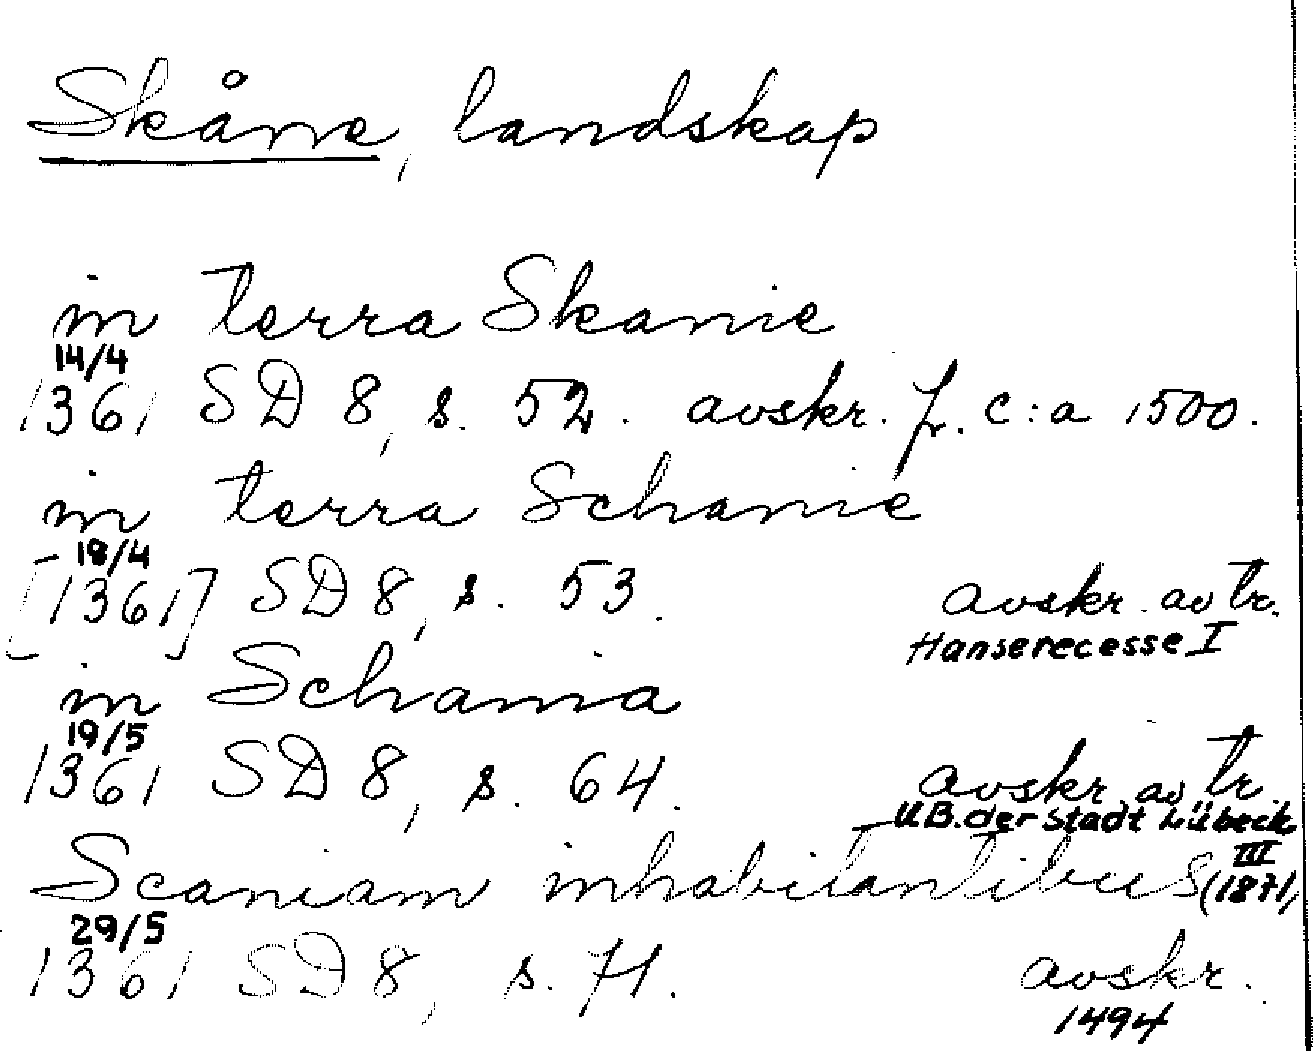 Skåne, landskap
in terra Skanie
14/4
1361 SD 8, s. 52. avskr. fr. c:a 1500.
in terra Schanie
18/4
[1361] SD 8, s. 53. avskr. av tr.
Hanserecesse I
in Schania
19/5
1361 SD 8, s. 64. avskr. av tr.
UB. der Stadt Lübeck
III
Scaniam inhabitantibus (1871)
29/5
1361 SD 8, s. 71. avskr.
1494